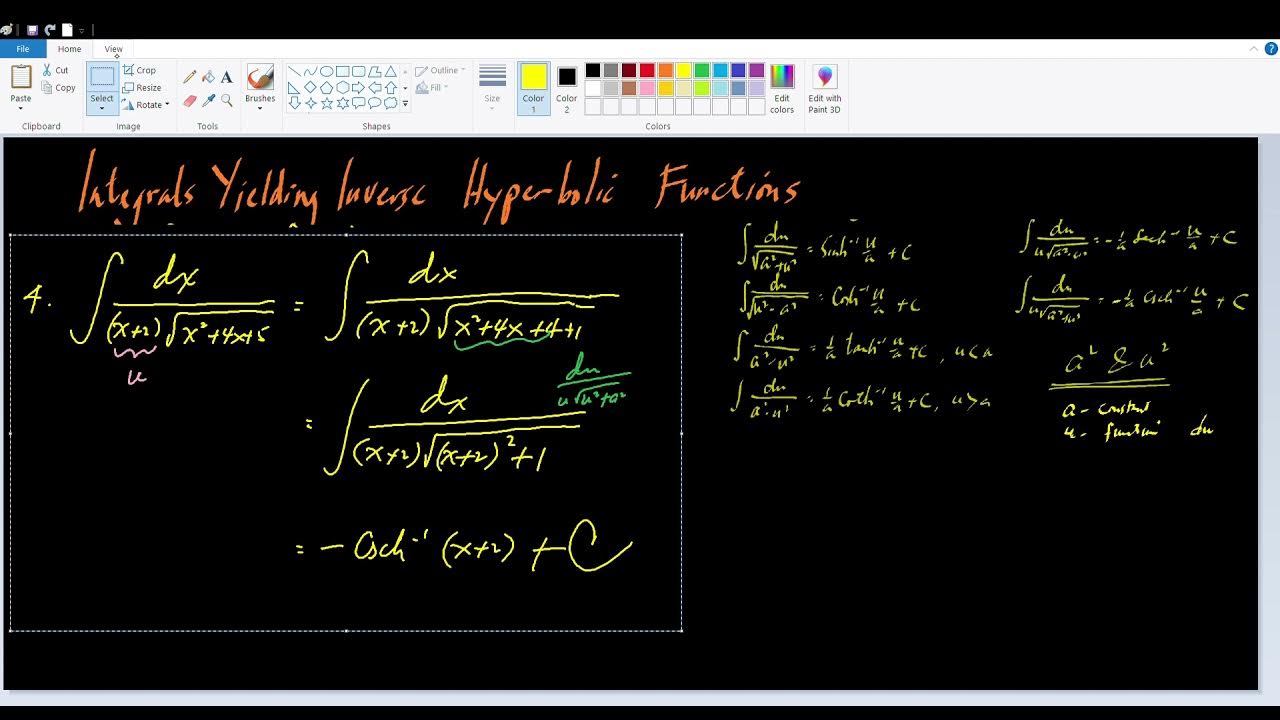 File Home View
Paste Cut Copy Select Crop Resize Rotate Brushes Outline Fill Size Color 1 Color 2 Edit colors Edit with Paint 3D
Clipboard Image Tools Shapes Colors
Integrals Yielding Inverse Hyperbolic Functions
4. ∫ dx / ((x+2)√(x²+4x+5)) = ∫ dx / ((x+2)√(x²+4x+4+1))
u
du / (u√(u²+a²))
= ∫ dx / ((x+2)√((x+2)²+1))
= - Csch⁻¹ (x+2) + C
∫ du / √(a²+u²) = Sinh⁻¹ u/a + C
∫ du / √(u²-a²) = Cosh⁻¹ u/a + C
∫ du / (a²-u²) = 1/a tanh⁻¹ u/a + C, u<a
∫ du / (a²-u²) = 1/a Coth⁻¹ u/a + C, u>a
∫ du / (u√(a²-u²)) = -1/a Sech⁻¹ u/a + C
∫ du / (u√(a²+u²)) = -1/a Csch⁻¹ u/a + C
a² & u²
a - constant
u - function du